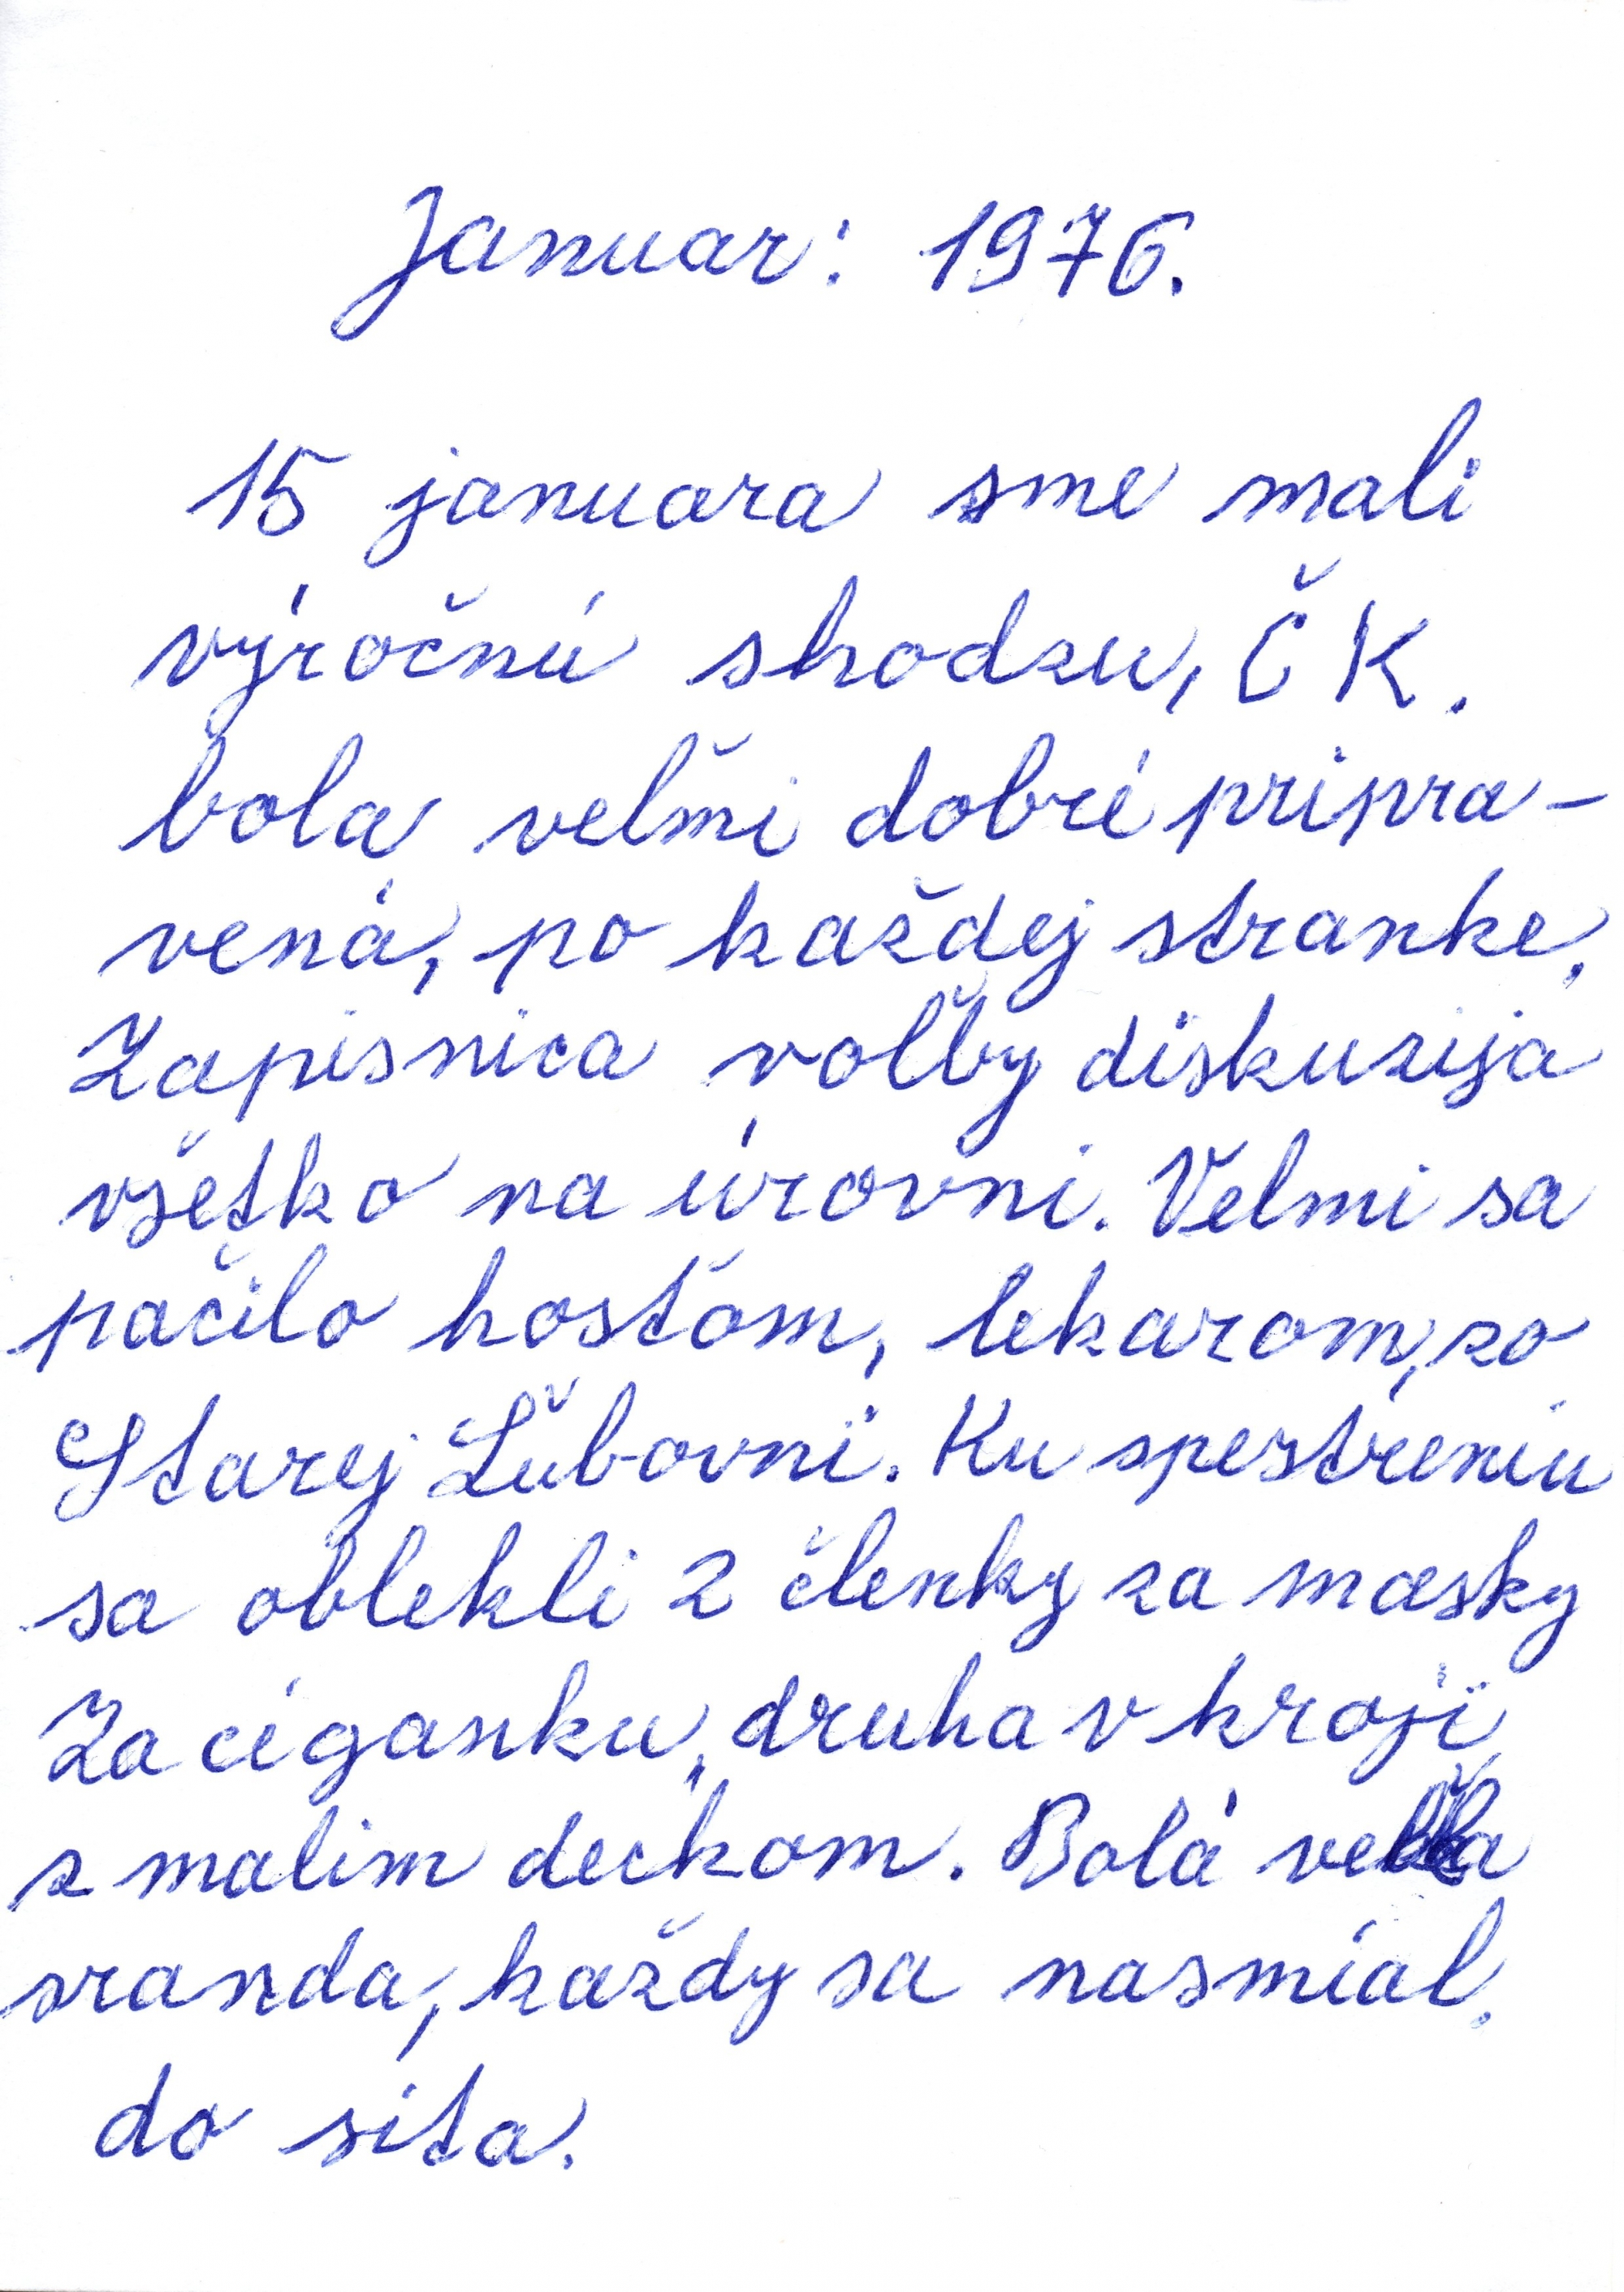 Januar: 1976.
15 januara sme mali
výročnú shodzu, ČK.
bola velmǐ dobré pripra-
vená, po každej stranke.
Zapisnica voľby diskuzija
všetko na úrovni. Velmi sa
pačilo hosťom, lekarom, zo
Starej Ľubovni. Ku spestreniu
sa oblekli 2 členky za masky
Za ciganku, druha v kroji
z malim deckom. Bolá veľka
sranda, každy sa nasmial.
do sita.